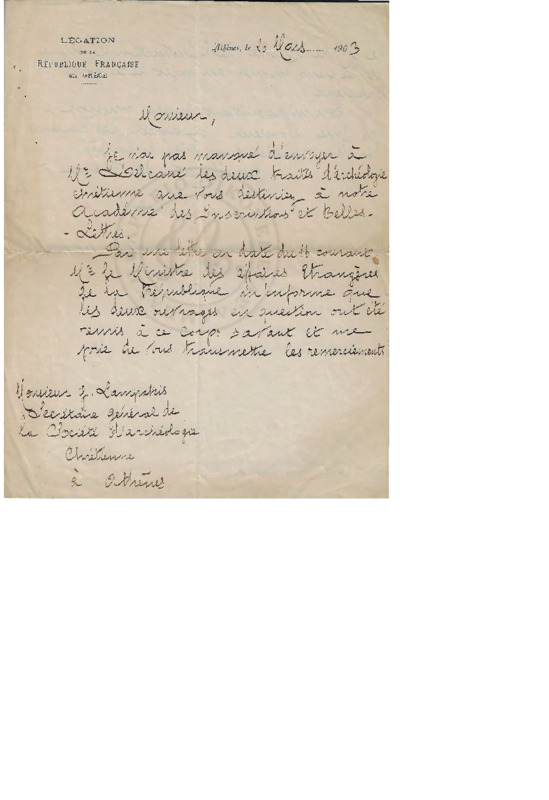 LÉGATION
DE LA
RÉPUBLIQUE FRANÇAISE
EN GRÈCE
Athènes, le 20 Mars 1903
Monsieur,
Je n'ai pas manqué d'envoyer à
Mr Delcassé les deux traités d'archéologie
chrétienne que vous destiniez à notre
Académie des Inscriptions et Belles-
-Lettres.
Par une lettre en date du 16 courant
Mr le Ministre des Affaires Etrangères
de la République m'informe que
les deux ouvrages en question ont été
remis à ce Corps savant et me
prie de vous transmettre les remerciements
Monsieur G. Lampakis
Secrétaire général de
la Société d'archéologie
Chrétienne
à Athènes